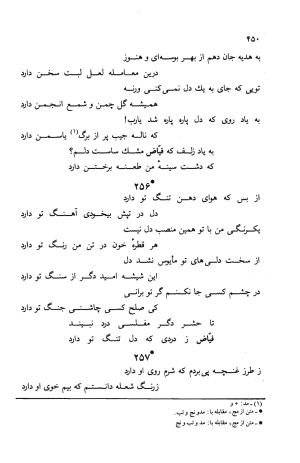 ۴۵۰
به هدیه جان دهم از بهر بوسه‌ای و هنوز
درین معامله لعل لبت سخن دارد
تویی که جای به یك دل نمی‌کنی ورنه
همیشه گل چمن و شمع انجمن دارد
به یاد روی که دل پاره پاره شد یارب!
که ناله جیب پر از برگ(۱) یاسمن دارد
به یاد زلف که فیّاض مشك ساست دلم؟
که دشت سینهٔ من طعنه برختن دارد
*۲۵۶
از بس که هوای دهن تنگ تو دارد
دل در تپش بیخودی آهنگ تو دارد
یکرنگی من با تو همین منصب دل نیست
هر قطرهٔ خون در تن من رنگ تو دارد
از سخت دلی‌های تو مأیوس نشد دل
این شیشه امید دگر از سنگ تو دارد
در چشم کسی جا نکنم گر تو برانی
کی صلح کسی چاشنی جنگ تو دارد
تا حشر دگر مفلسی درد نبیند
فیّاض ز دردی که دل تنگ تو دارد
*۲۵۷
ز طرز غنچه پی بردم که شرم روی او دارد
زرنگ شعله دانستم که بیم خوی او دارد
(۱) ـ مد: + و
* ـ متن از مج، مقابله با: مد و نج و تب.
* ـ متن از مج، مقابله با: مد و تب و نج